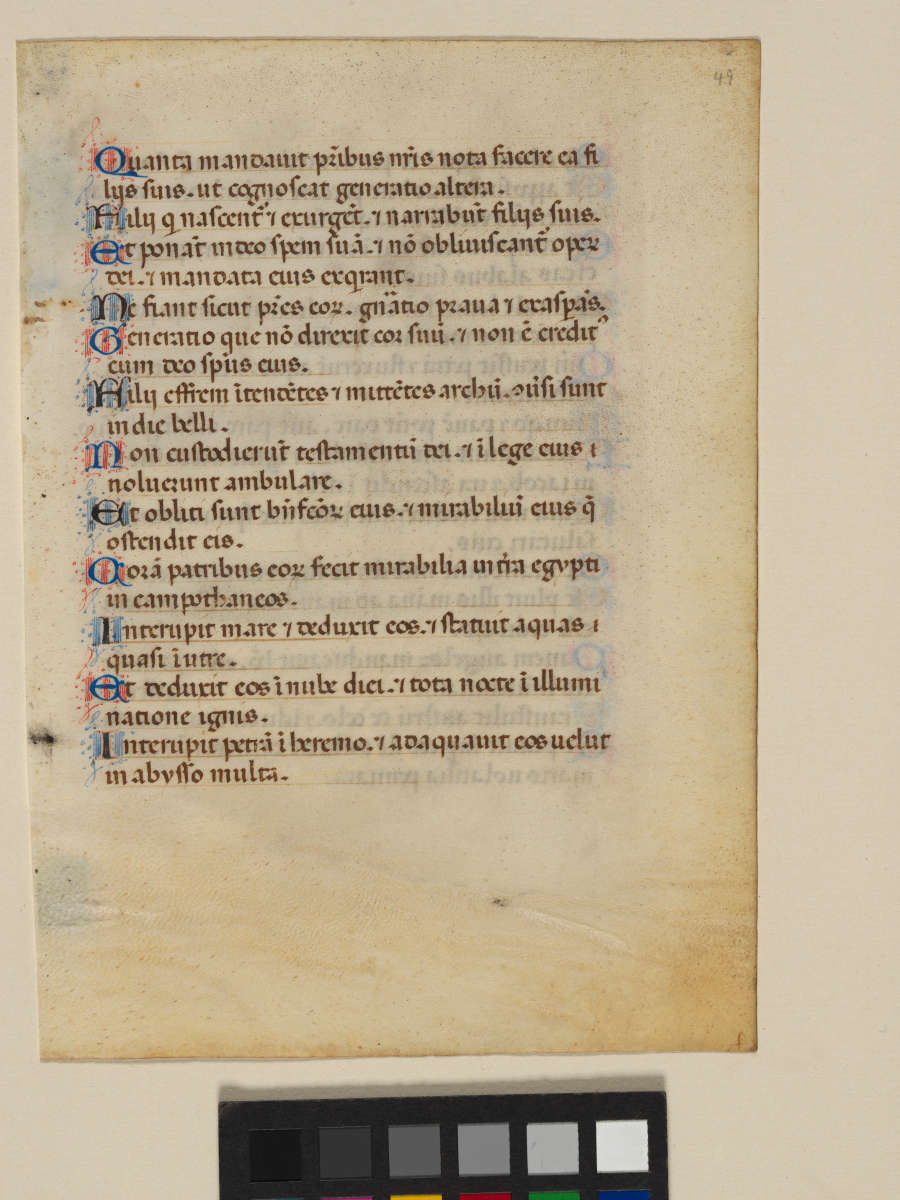 49
Quanta mandauit pr̃ibus nr̃is nota facere ea fi
lijs suis. ut cognoscat generatio altera.
Filij q nascent᷑ ⁊ exurgẽt. ⁊ narrabũt filijs suis.
Et ponãt in deo spem suã. ⁊ nõ obliuiscant᷑ operꝝ
dei. ⁊ mandata eius exqrant.
Ne fiant sicut pr̃es eoꝝ. gñatio praua ⁊ exaspãs.
Generatio que nõ direxit cor suũ. ⁊ non ẽ credit᷑
cum deo sp̃us eius.
Filij effrem ĩtendẽtes ⁊ mittẽtes archũ. ↄũsi sunt
in die belli.
Non custodierũt testamentũ dei. ⁊ ĩ lege eius ı
noluerunt ambulare.
Et obliti sunt bñfcõꝝ eius. ⁊ mirabiliũ eius q̃
ostendit eis.
Corã patribus eoꝝ fecit mirabilia in tr̃a egypti
in campo thaneos.
Interupit mare ⁊ deduxit eos. ⁊ statuit aquas ı
quasi ĩ utre.
Et deduxit eos ĩ nube diei. ⁊ tota nocte ĩ illumi
natione ignis.
Interupit petrã ĩ heremo. ⁊ adaquauit eos uelut
in abysso multa.